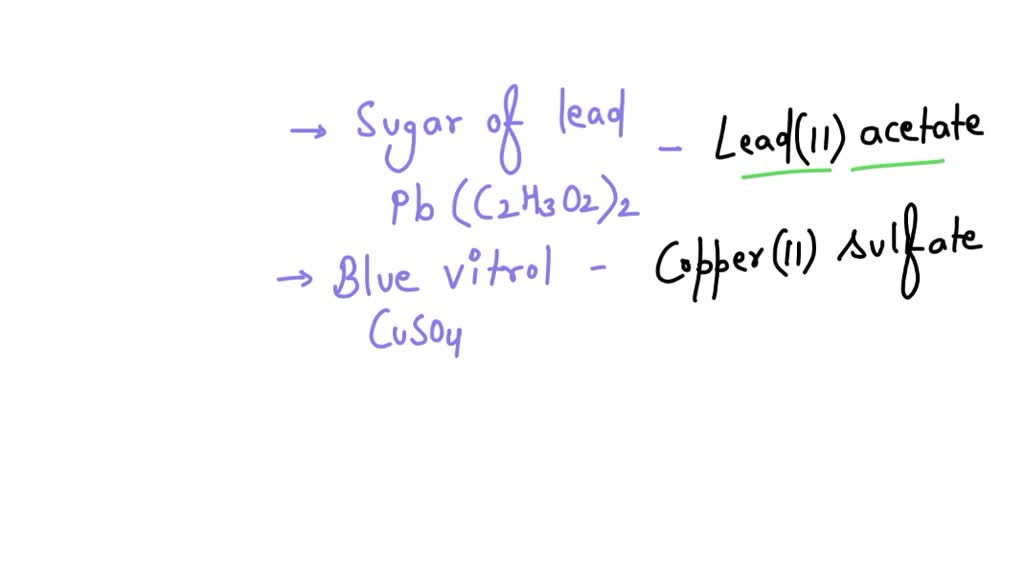 → Sugar of lead - Lead(II) acetate
Pb (C2H3O2)2
→ Blue vitrol - Copper(II) sulfate
CuSO4